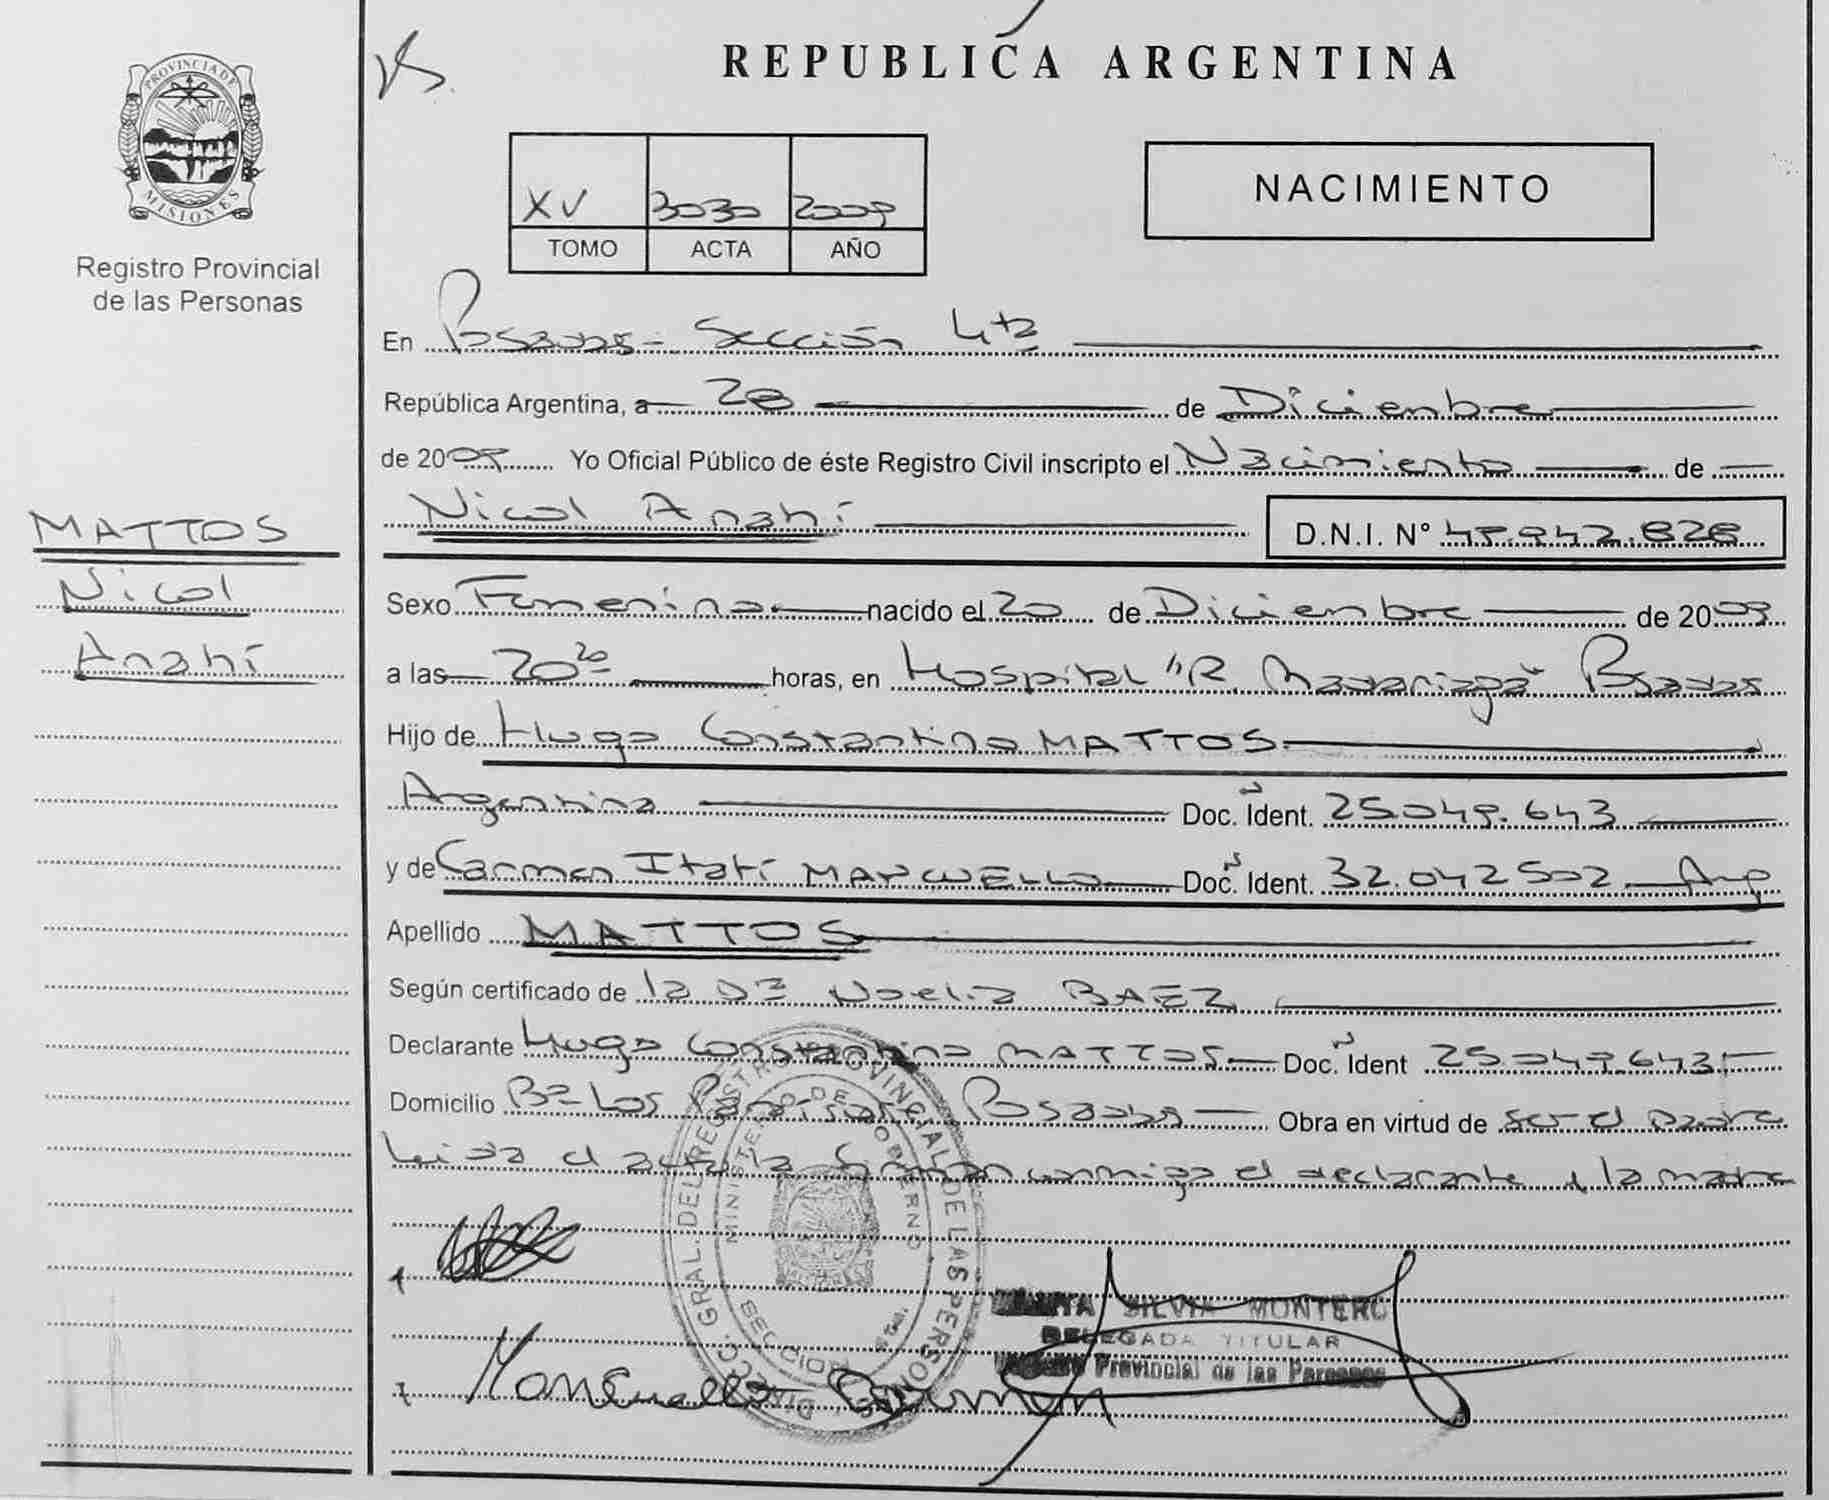 REPUBLICA ARGENTINA
PROVINCIA DE
MISIONES
Registro Provincial
de las Personas
NACIMIENTO
XV 3030 2009
TOMO ACTA AÑO
En Posadas - Sección 4ta
República Argentina, a 28 de Diciembre
de 2009 Yo Oficial Público de éste Registro Civil inscripto el Nacimiento de
Nicol Anahí D.N.I. Nº
MATTOS
Nicol
Anahí
Sexo Femenino nacido el 20 de Diciembre de 2009
a las 20 20 horas, en Hospital "R. Madariaga" Posadas
Hijo de Hugo Constantino MATTOS
Argentina Doc. Ident. 25.049.643
y de Carmen Itatí Doc. Ident. 32.042502 Arg
Apellido MATTOS
Según certificado de la Noelia BAEZ
Declarante Hugo Constantino MATTOS Doc. Ident 25.049.643
Domicilio Bº Los Posadas Obra en virtud de ser el padre
Leida el acta la firman conmigo el declarante y la madre
DIRECC. GRAL. DEL REGISTRO PROVINCIAL DE LAS PERSONAS
MINISTERIO DE GOBIERNO
SECCION
SILVIA MONTERO
DELEGADA TITULAR
Provincial de las Personas
Carmen